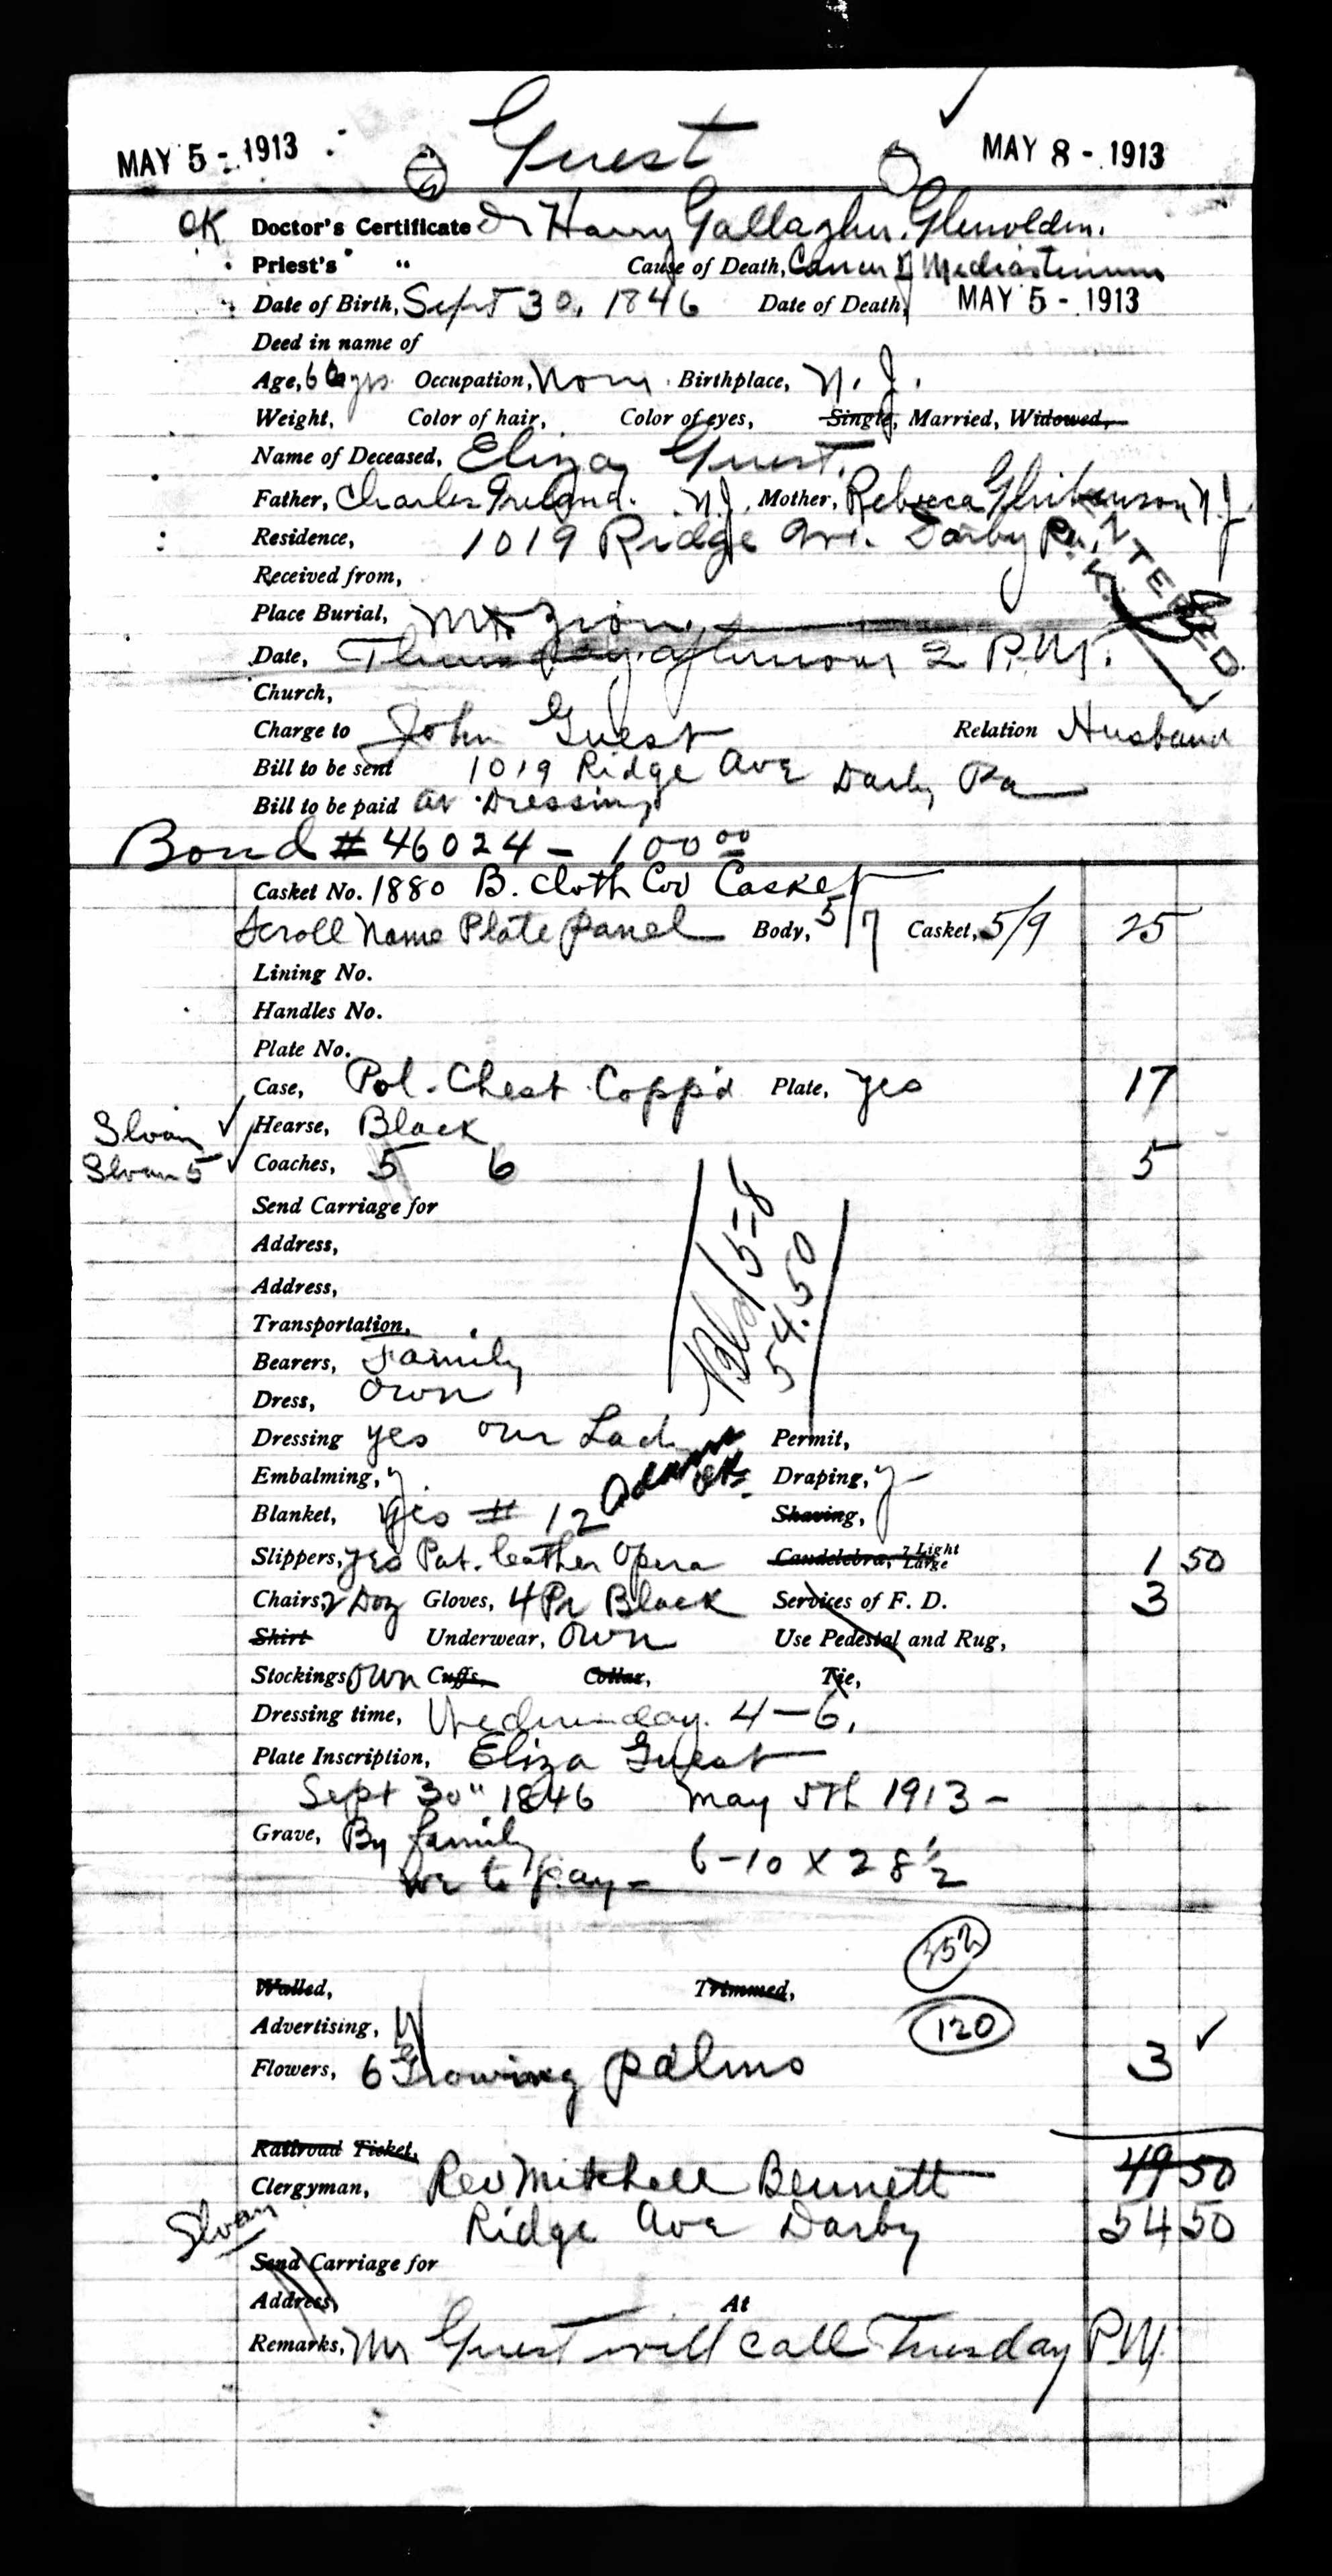 MAY 5 - 1913 Guest MAY 8 - 1913
OK Doctor's Certificate Dr Harry Gallagher. Glenolden.
Priest's " Cause of Death, Cancer of Mediastinum
Date of Birth, Sept 30, 1846 Date of Death, MAY 5 - 1913
Deed in name of
Age, 66 yrs Occupation, None Birthplace, N. J.
Weight, Color of hair, Color of eyes, Single, Married, Widowed,
Name of Deceased, Eliza Guest.
Father, Charles Ireland. N.J. Mother, Rebecca N.J.
Residence, 1019 Ridge Ave. Darby Pa.
ENTERED
Received from,
Place Burial, Mt Zion.
Date, Thursday afternoon 2 P.M.
Church,
Charge to John Guest Relation Husband
Bill to be sent 1019 Ridge Ave Darby Pa
Bill to be paid At Dressing
Bond # 46024 - 100 00
Casket No. 1880 B. Cloth Cov Casket
Scroll Name Plate panel Body, 5/7 Casket, 5/9 25
Lining No.
Handles No.
Plate No.
Case, Pol. Chest Copp'd Plate, yes 17
Sloan Hearse, Black
Sloan 5 Coaches, 5 6 5
Send Carriage for
Address,
Address,
Bld 5-8
54.50
Transportation,
Bearers, Family
Dress, own
Dressing yes our Lady Permit,
Embalming, y Draping, y
Blanket, yes # 12 Shaving,
Slippers, yes Pat. leather Opera Candelebra, 7 Light Large 1 50
Chairs, 2 Doz Gloves, 4 Pr Black Services of F. D. 3
Shirt Underwear, own Use Pedestal and Rug,
Stockings own Cuffs, Collar, Tie,
Dressing time, Wednesday. 4-6.
Plate Inscription, Eliza Guest
Sept 30" 1846 May 5th 1913 -
Grave, By family
we to pay - 6-10 x 28 1/2
Walled, Trimmed,
Advertising, 120
Flowers, 6 Growing palms 3
Railroad Ticket, 49 50
Clergyman, Rev Mitchell Bennett
Sloan Ridge Ave Darby 54 50
Send Carriage for
Address, At
Remarks, Mr Guest will call Tuesday P.M.